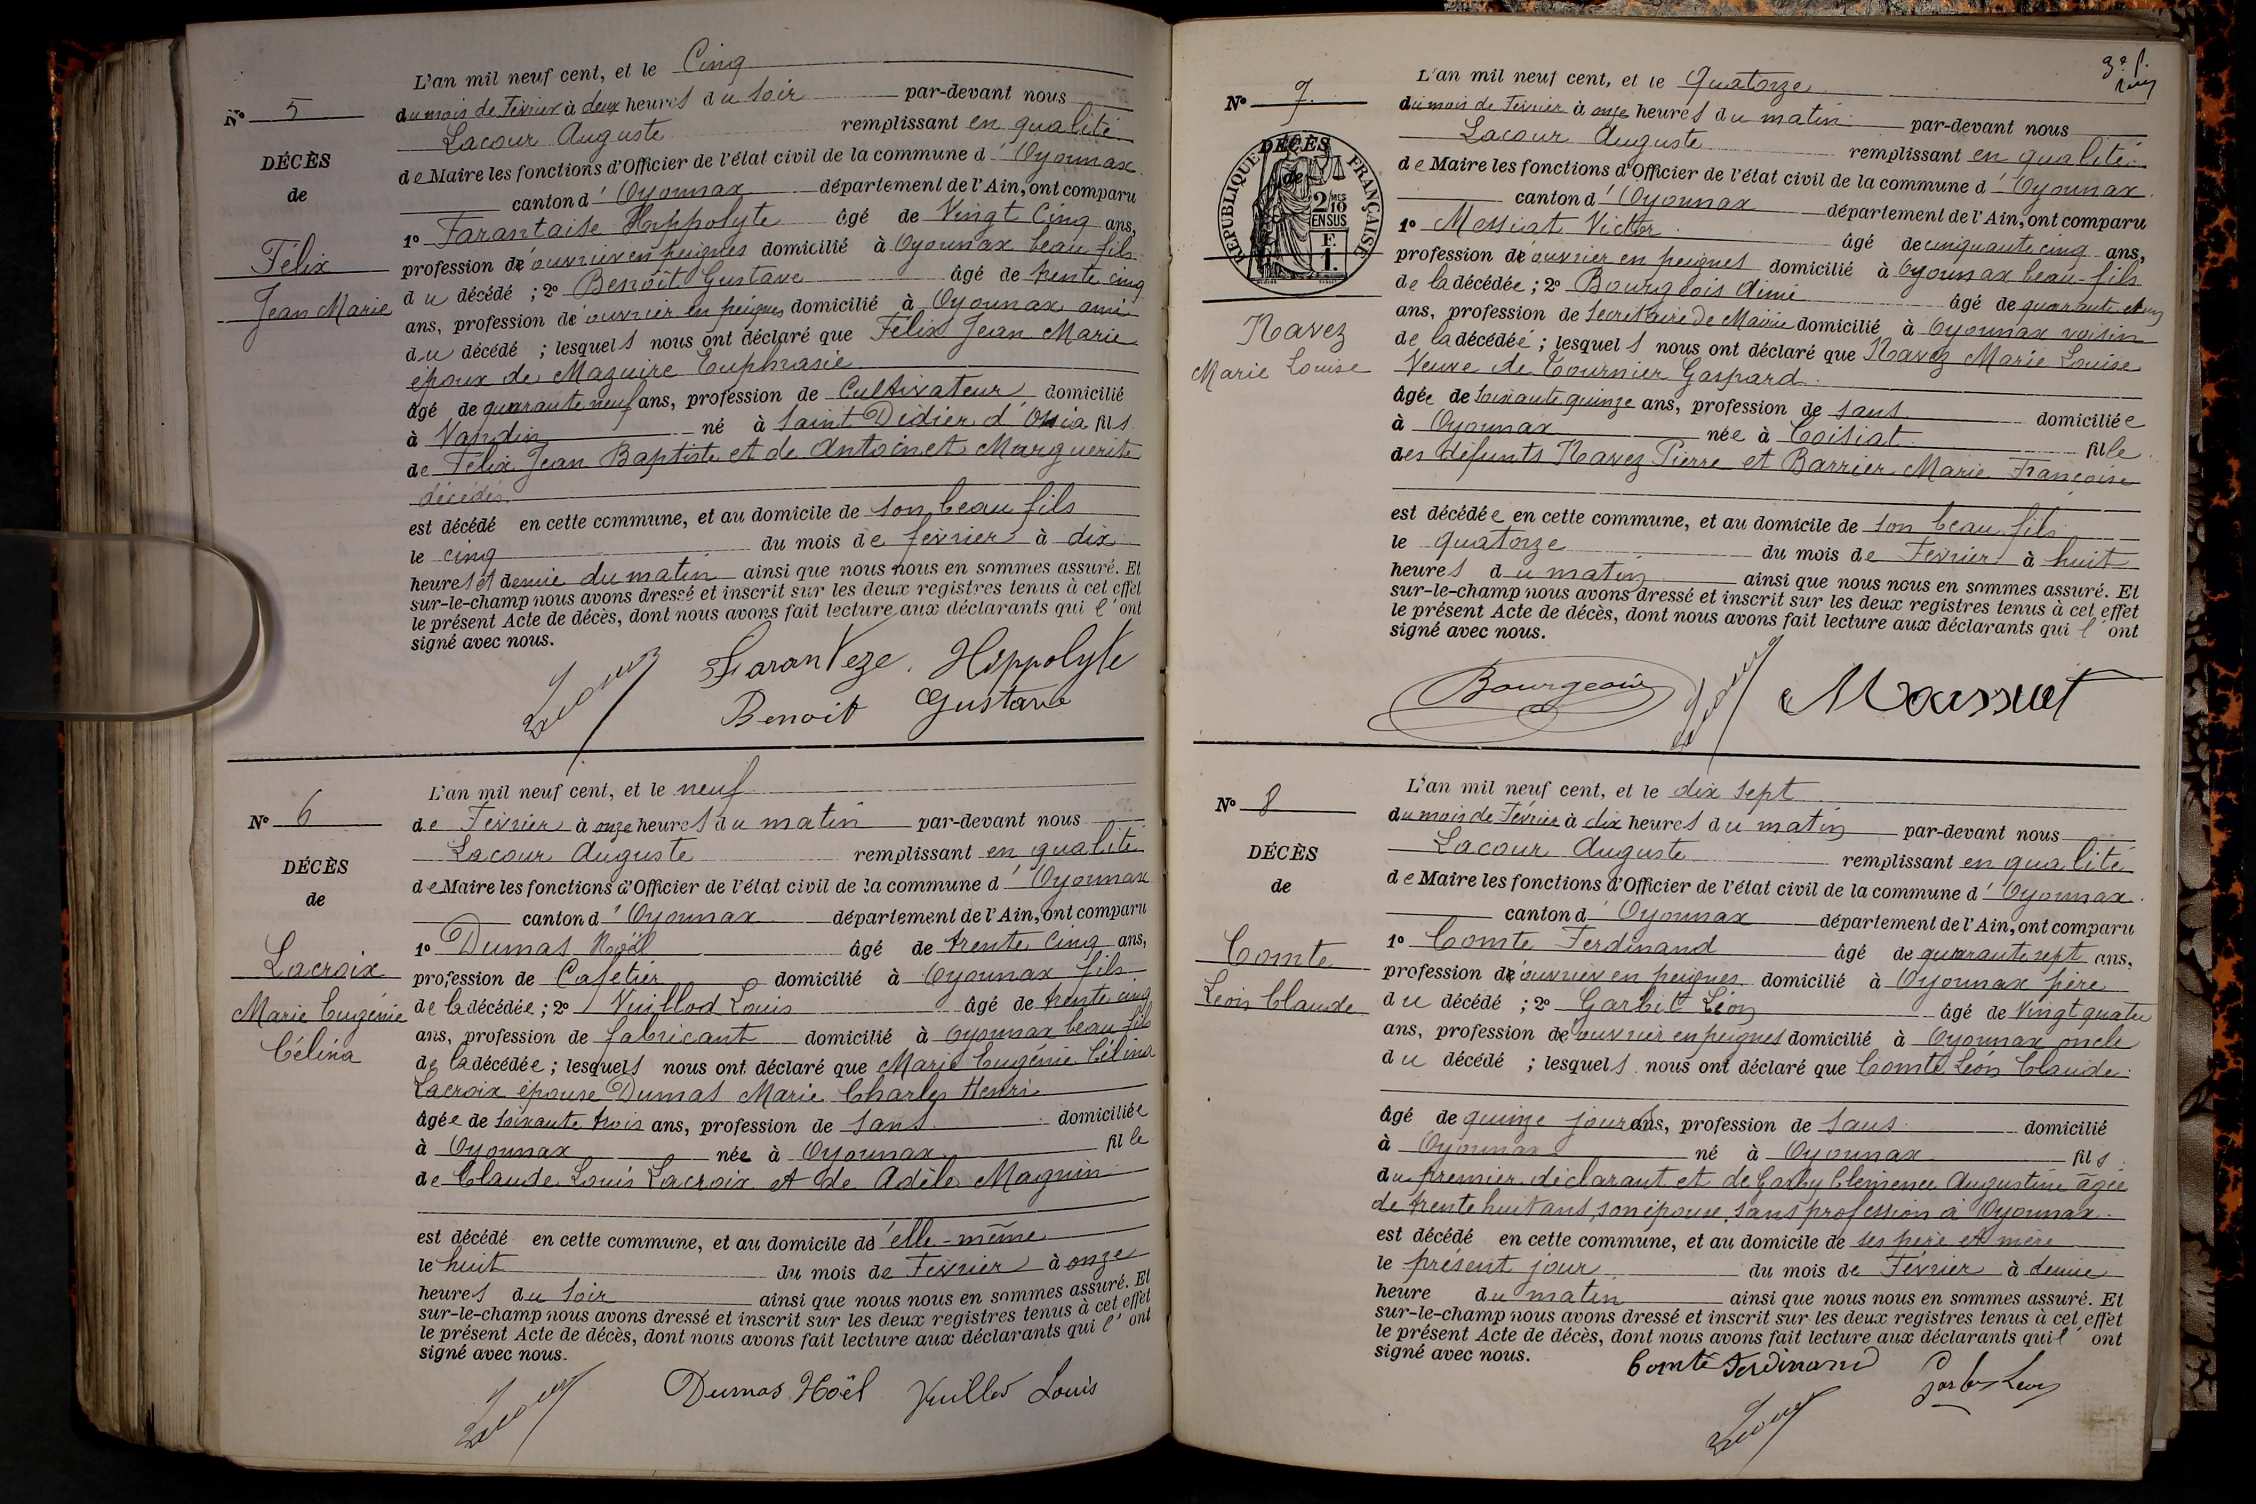 L'an mil neuf cent, et le Cinq
N° 5
du mois de Février à deux heures du soir par-devant nous
Lacour Auguste remplissant en qualité
DÉCÈS
de Maire les fonctions d'Officier de l'état civil de la commune d'Oyonnax
de
canton d'Oyonnax département de l'Ain, ont comparu
1° Tarantaise Hippolyte âgé de Vingt Cinq ans,
Félix
profession de ouvrier en peignes domicilié à Oyonnax beau fils
Jean Marie
du décédé ; 2° Benoît Gustave âgé de trente cinq
ans, profession de ouvrier en peignes domicilié à Oyonnax ami
du décédé ; lesquels nous ont déclaré que Félix Jean Marie
époux de Mazuire Euphrasie
âgé de quarante neuf ans, profession de Cultivateur domicilié
à Vandin né à Saint Didier d'Ossia fils
de Félix Jean Baptiste et de Antoinet Marguerite
décédés
est décédé en cette commune, et au domicile de son beau fils
le cinq du mois de février à dix
heures et demie du matin ainsi que nous nous en sommes assuré. Et
sur-le-champ nous avons dressé et inscrit sur les deux registres tenus à cet effet
le présent Acte de décès, dont nous avons fait lecture aux déclarants qui l'ont
signé avec nous.
Taranteze. Hippolyte
Lacour
Benoit Gustave
L'an mil neuf cent, et le neuf
N° 6
de Février à onze heures du matin par-devant nous
Lacour Auguste remplissant en qualité
DÉCÈS
de Maire les fonctions d'Officier de l'état civil de la commune d'Oyonnax
de
canton d'Oyonnax département de l'Ain, ont comparu
1° Dumas Noël âgé de trente cinq ans,
Lacroix
profession de Cafetier domicilié à Oyonnax fils
Marie Eugénie
de la décédée ; 2° Vuillod Louis âgé de trente cinq
Célina
ans, profession de fabricant domicilié à Oyonnax beau fils
de la décédée ; lesquels nous ont déclaré que Marie Eugénie Célina
Lacroix épouse Dumas Marie Charles Henri
âgée de soixante trois ans, profession de sans domiciliée
à Oyonnax née à Oyonnax fille
de Claude Louis Lacroix et de Adèle Magnin
est décédé en cette commune, et au domicile de d'elle-même
le huit du mois de Février à onze
heures du soir ainsi que nous nous en sommes assuré. Et
sur-le-champ nous avons dressé et inscrit sur les deux registres tenus à cet effet
le présent Acte de décès, dont nous avons fait lecture aux déclarants qui l'ont
signé avec nous.
Dumas Noël Vuillod Louis
Lacour
L'an mil neuf cent, et le Quatorze
N° 7.
du mois de Février à onze heures du matin par-devant nous
Lacour Auguste remplissant en qualité
DÉCÈS
de Maire les fonctions d'Officier de l'état civil de la commune d'Oyonnax
de
RÉPUBLIQUE FRANÇAISE
2/10 EN SUS
F. 1.
canton d'Oyonnax département de l'Ain, ont comparu
1° Messiat Victor âgé de cinquante cinq ans,
profession de ouvrier en peignes domicilié à Oyonnax beau-fils
de la décédée ; 2° Bourgeois Aimé âgé de quarante et un
ans, profession de Secrétaire de Mairie domicilié à Oyonnax voisin
Navez
de la décédée ; lesquels nous ont déclaré que Navez Marie Louise
Marie Louise
Veuve de Tournier Gaspard
âgée de soixante quinze ans, profession de sans domiciliée
à Oyonnax née à Coisiat fille
des défunts Navez Pierre et Barrier Marie Françoise
est décédée en cette commune, et au domicile de son beau fils
le quatorze du mois de Février à huit
heures du matin ainsi que nous nous en sommes assuré. Et
sur-le-champ nous avons dressé et inscrit sur les deux registres tenus à cet effet
le présent Acte de décès, dont nous avons fait lecture aux déclarants qui l'ont
signé avec nous.
Bourgeois Lacour
L'an mil neuf cent, et le dix sept
N° 8
du mois de Février à dix heures du matin par-devant nous
Lacour Auguste remplissant en qualité
DÉCÈS
de Maire les fonctions d'Officier de l'état civil de la commune d'Oyonnax
de
canton d'Oyonnax département de l'Ain, ont comparu
1° Comte Ferdinand âgé de quarante sept ans,
Comte
profession de ouvrier en peignes domicilié à Oyonnax père
Léon Claude
du décédé ; 2° Garbit Léon âgé de Vingt quatre
ans, profession de ouvrier en peignes domicilié à Oyonnax oncle
du décédé ; lesquels nous ont déclaré que Comte Léon Claude
âgé de quinze jours ans, profession de sans domicilié
à Oyonnax né à Oyonnax fils
du premier déclarant et de Garby Clémence Augustine âgée
de trente huit ans, son épouse, sans profession à Oyonnax
est décédé en cette commune, et au domicile de ses père et mère
le présent jour du mois de Février à demie
heure du matin ainsi que nous nous en sommes assuré. Et
sur-le-champ nous avons dressé et inscrit sur les deux registres tenus à cet effet
le présent Acte de décès, dont nous avons fait lecture aux déclarants qui l'ont
signé avec nous.
Comte Ferdinand
Lacour